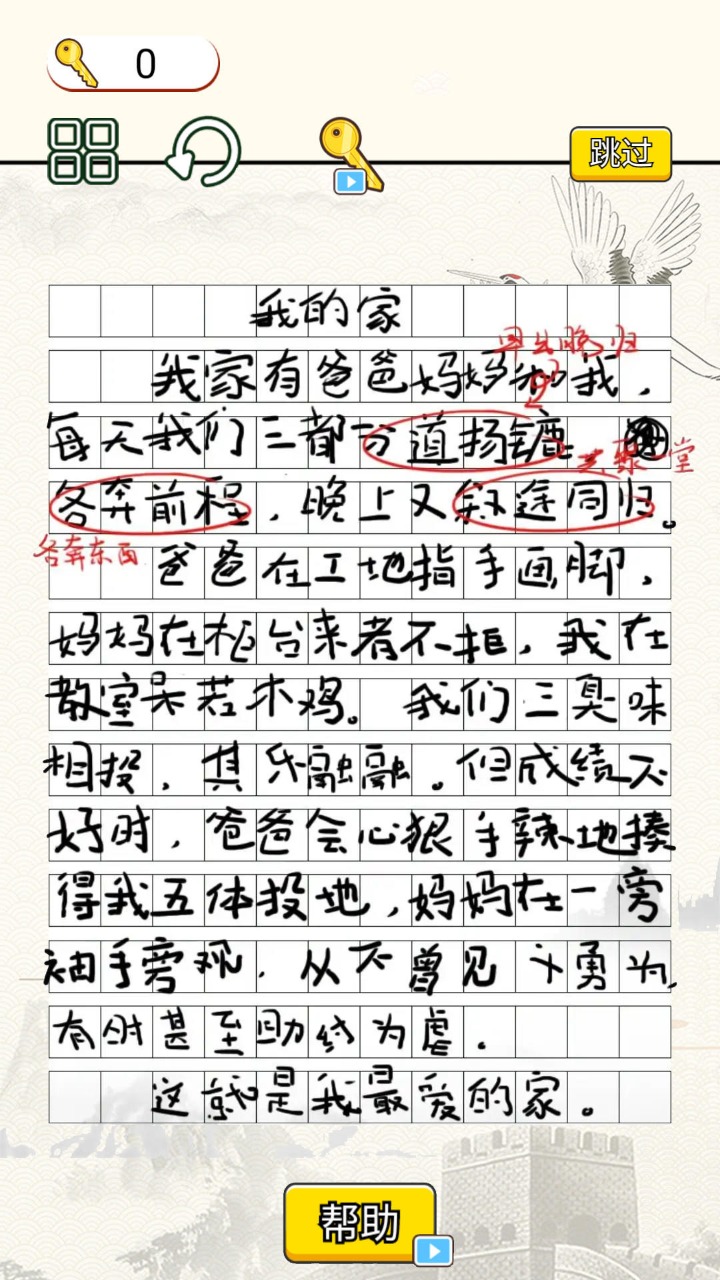 0
跳过
我的家
早出晚归
我家有爸爸妈妈和我，
每天我们三都分道扬镳
共聚一堂
各奔前程，晚上又殊途同归。
各奔东西
爸爸在工地指手画脚，
妈妈在柜台来者不拒，我在
教室呆若木鸡。我们三臭味
相投，其乐融融。但成绩不
好时，爸爸会心狠手辣地揍
得我五体投地，妈妈在一旁
袖手旁观，从不曾见
勇为，
有时甚至助纣为虐.
这就是我最爱的家。
帮助